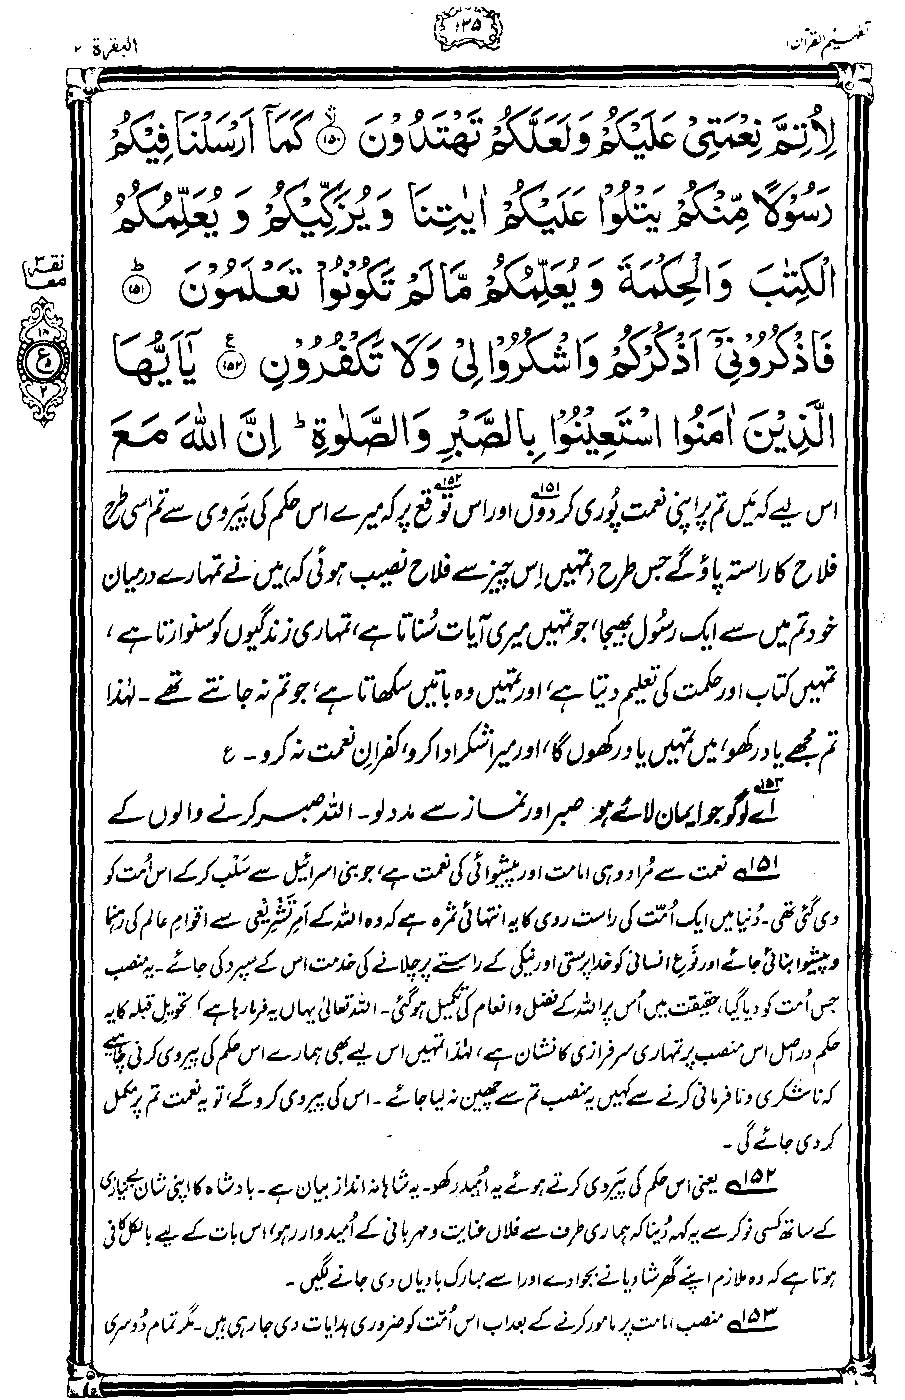 تفہیم القرآن ۱
۱۲۵
البقرۃ ۲
لِاُتِمَّ نِعْمَتِیْ عَلَیْكُمْ وَلَعَلَّكُمْ تَهْتَدُوْنَ ﴿۱۵۰﴾ كَمَآ اَرْسَلْنَا فِیْكُمْ
رَسُوْلًا مِّنْكُمْ یَتْلُوْا عَلَیْكُمْ اٰیٰتِنَا وَیُزَكِّیْكُمْ وَیُعَلِّمُكُمُ
الْكِتٰبَ وَالْحِكْمَةَ وَیُعَلِّمُكُمْ مَّا لَمْ تَكُوْنُوْا تَعْلَمُوْنَ ﴿۱۵۱﴾ؕ
فَاذْكُرُوْنِیْۤ اَذْكُرْكُمْ وَاشْكُرُوْا لِیْ وَلَا تَكْفُرُوْنِ ﴿۱۵۲﴾ع یٰٓاَیُّهَا
الَّذِیْنَ اٰمَنُوا اسْتَعِیْنُوْا بِالصَّبْرِ وَالصَّلٰوةِ ؕ اِنَّ اللّٰهَ مَعَ
ع
۲
اس لیے کہ میں تم پر اپنی نعمت پُوری کر دوں۱۵۱ اور اس توقع۱۵۲ پر کہ میرے اس حکم کی پَیروی سے تم اسی طرح
فلاح کا راستہ پاؤ گے جس طرح (تمہیں اِس چیز سے فلاح نصیب ہوئی کہ) میں نے تمہارے درمیان
خود تم میں سے ایک رسُول بھیجا، جو تمہیں میری آیات سُناتا ہے، تمہاری زندگیوں کو سنوارتا ہے،
تمہیں کتاب اور حکمت کی تعلیم دیتا ہے، اور تمہیں وہ باتیں سکھاتا ہے، جو تم نہ جانتے تھے۔ لہٰذا
تم مجھے یاد رکھو، میں تمہیں یاد رکھوں گا، اور میرا شکر ادا کرو، کفرانِ نعمت نہ کرو۔ ع
اَے۱۵۳ لوگو جو ایمان لائے ہو، صبر اور نماز سے مدد لو۔ اللہ صبر کرنے والوں کے
۱۵۱ نعمت سے مُراد وہی امامت اور پیشوائی کی نعمت ہے، جو بنی اسرائیل سے سَلب کر کے اس اُمت کو
دی گئی تھی۔ دُنیا میں ایک اُمّت کی راست روی کا یہ انتہائی ثمرہ ہے کہ وہ اللہ کے اَمرِ تشریعی سے اقوامِ عالم کی رہنما
و پیشوا بنائی جائے اور نَوعِ انسانی کو خدا پرستی اور نیکی کے راستے پر چلانے کی خدمت اس کے سپرد کی جائے۔ یہ منصب
جس اُمت کو دیا گیا، حقیقت میں اُس پر اللہ کے فضل و انعام کی تکمیل ہو گئی۔ اللہ تعالیٰ یہاں یہ فرما رہا ہے کہ تحویلِ قبلہ کا یہ
حکم دراصل اس منصب پر تمہاری سرفرازی کا نشان ہے، لہٰذا تمہیں اس لیے بھی ہمارے اس حکم کی پیروی کرنی چاہیے
کہ ناشکری و نافرمانی کرنے سے کہیں یہ منصب تم سے چھین نہ لیا جائے۔ اس کی پیروی کرو گے، تو یہ نعمت تم پر مکمل
کر دی جائے گی۔
۱۵۲ یعنی اس حکم کی پَیروی کرتے ہوئے یہ اُمید رکھو۔ یہ شاہانہ اندازِ بیان ہے۔ بادشاہ کا اپنی شانِ بے نیازی
کے ساتھ کسی نوکر سے یہ کہہ دُینا کہ ہماری طرف سے فلاں عنایت و مہربانی کے اُمیدوار رہو، اس بات کے لیے بالکل کافی
ہوتا ہے کہ وہ ملازم اپنے گھر شادیانے بجوا دے اور اسے مبارکبادیاں دی جانے لگیں۔
۱۵۳ منصبِ امامت پر مامور کرنے کے بعد اب اس اُمّت کو ضروری ہدایات دی جا رہی ہیں۔ مگر تمام دُوسری